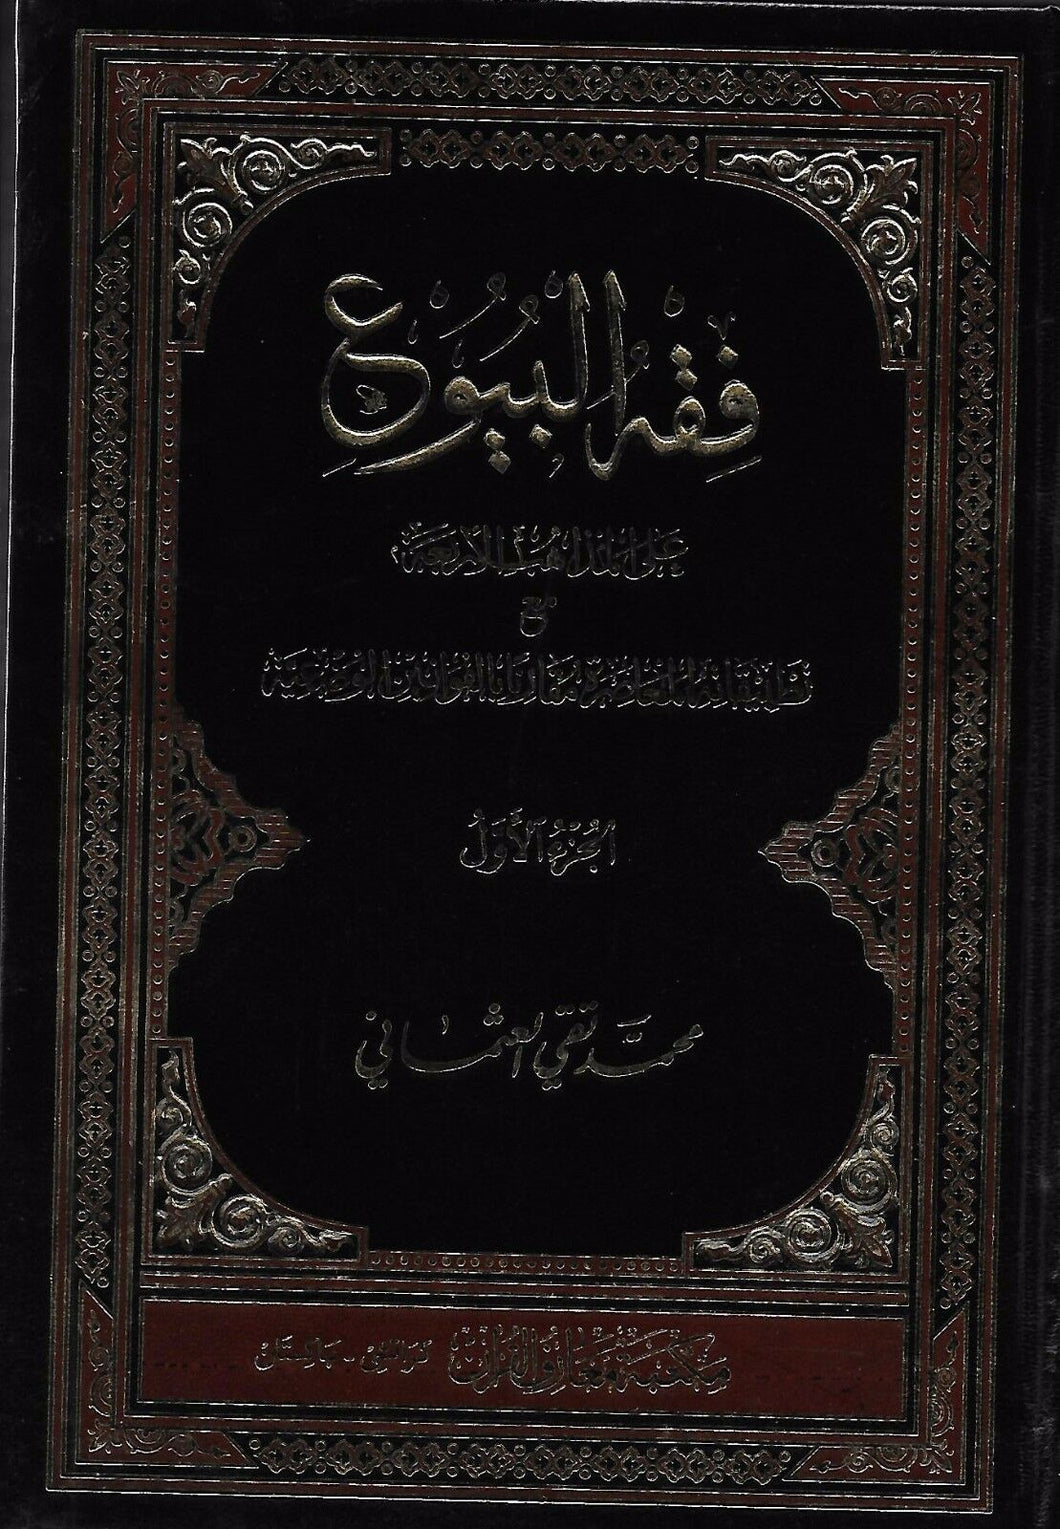 فِقْهُ الْبُيُوعِ
عَلَى المَذَاهِبِ الأَرْبَعَةِ
مَعَ
تَطْبِيقَاتِهِ المُعَاصِرَةِ مُقَارَنًا بِالقَوَانِينِ الوَضْعِيَّةِ
الجُزْءُ الأَوَّلُ
محمَّد تقي العثماني
مَكْتَبَة مَعَارِفُ القُرْآن كراتشي - باكستان